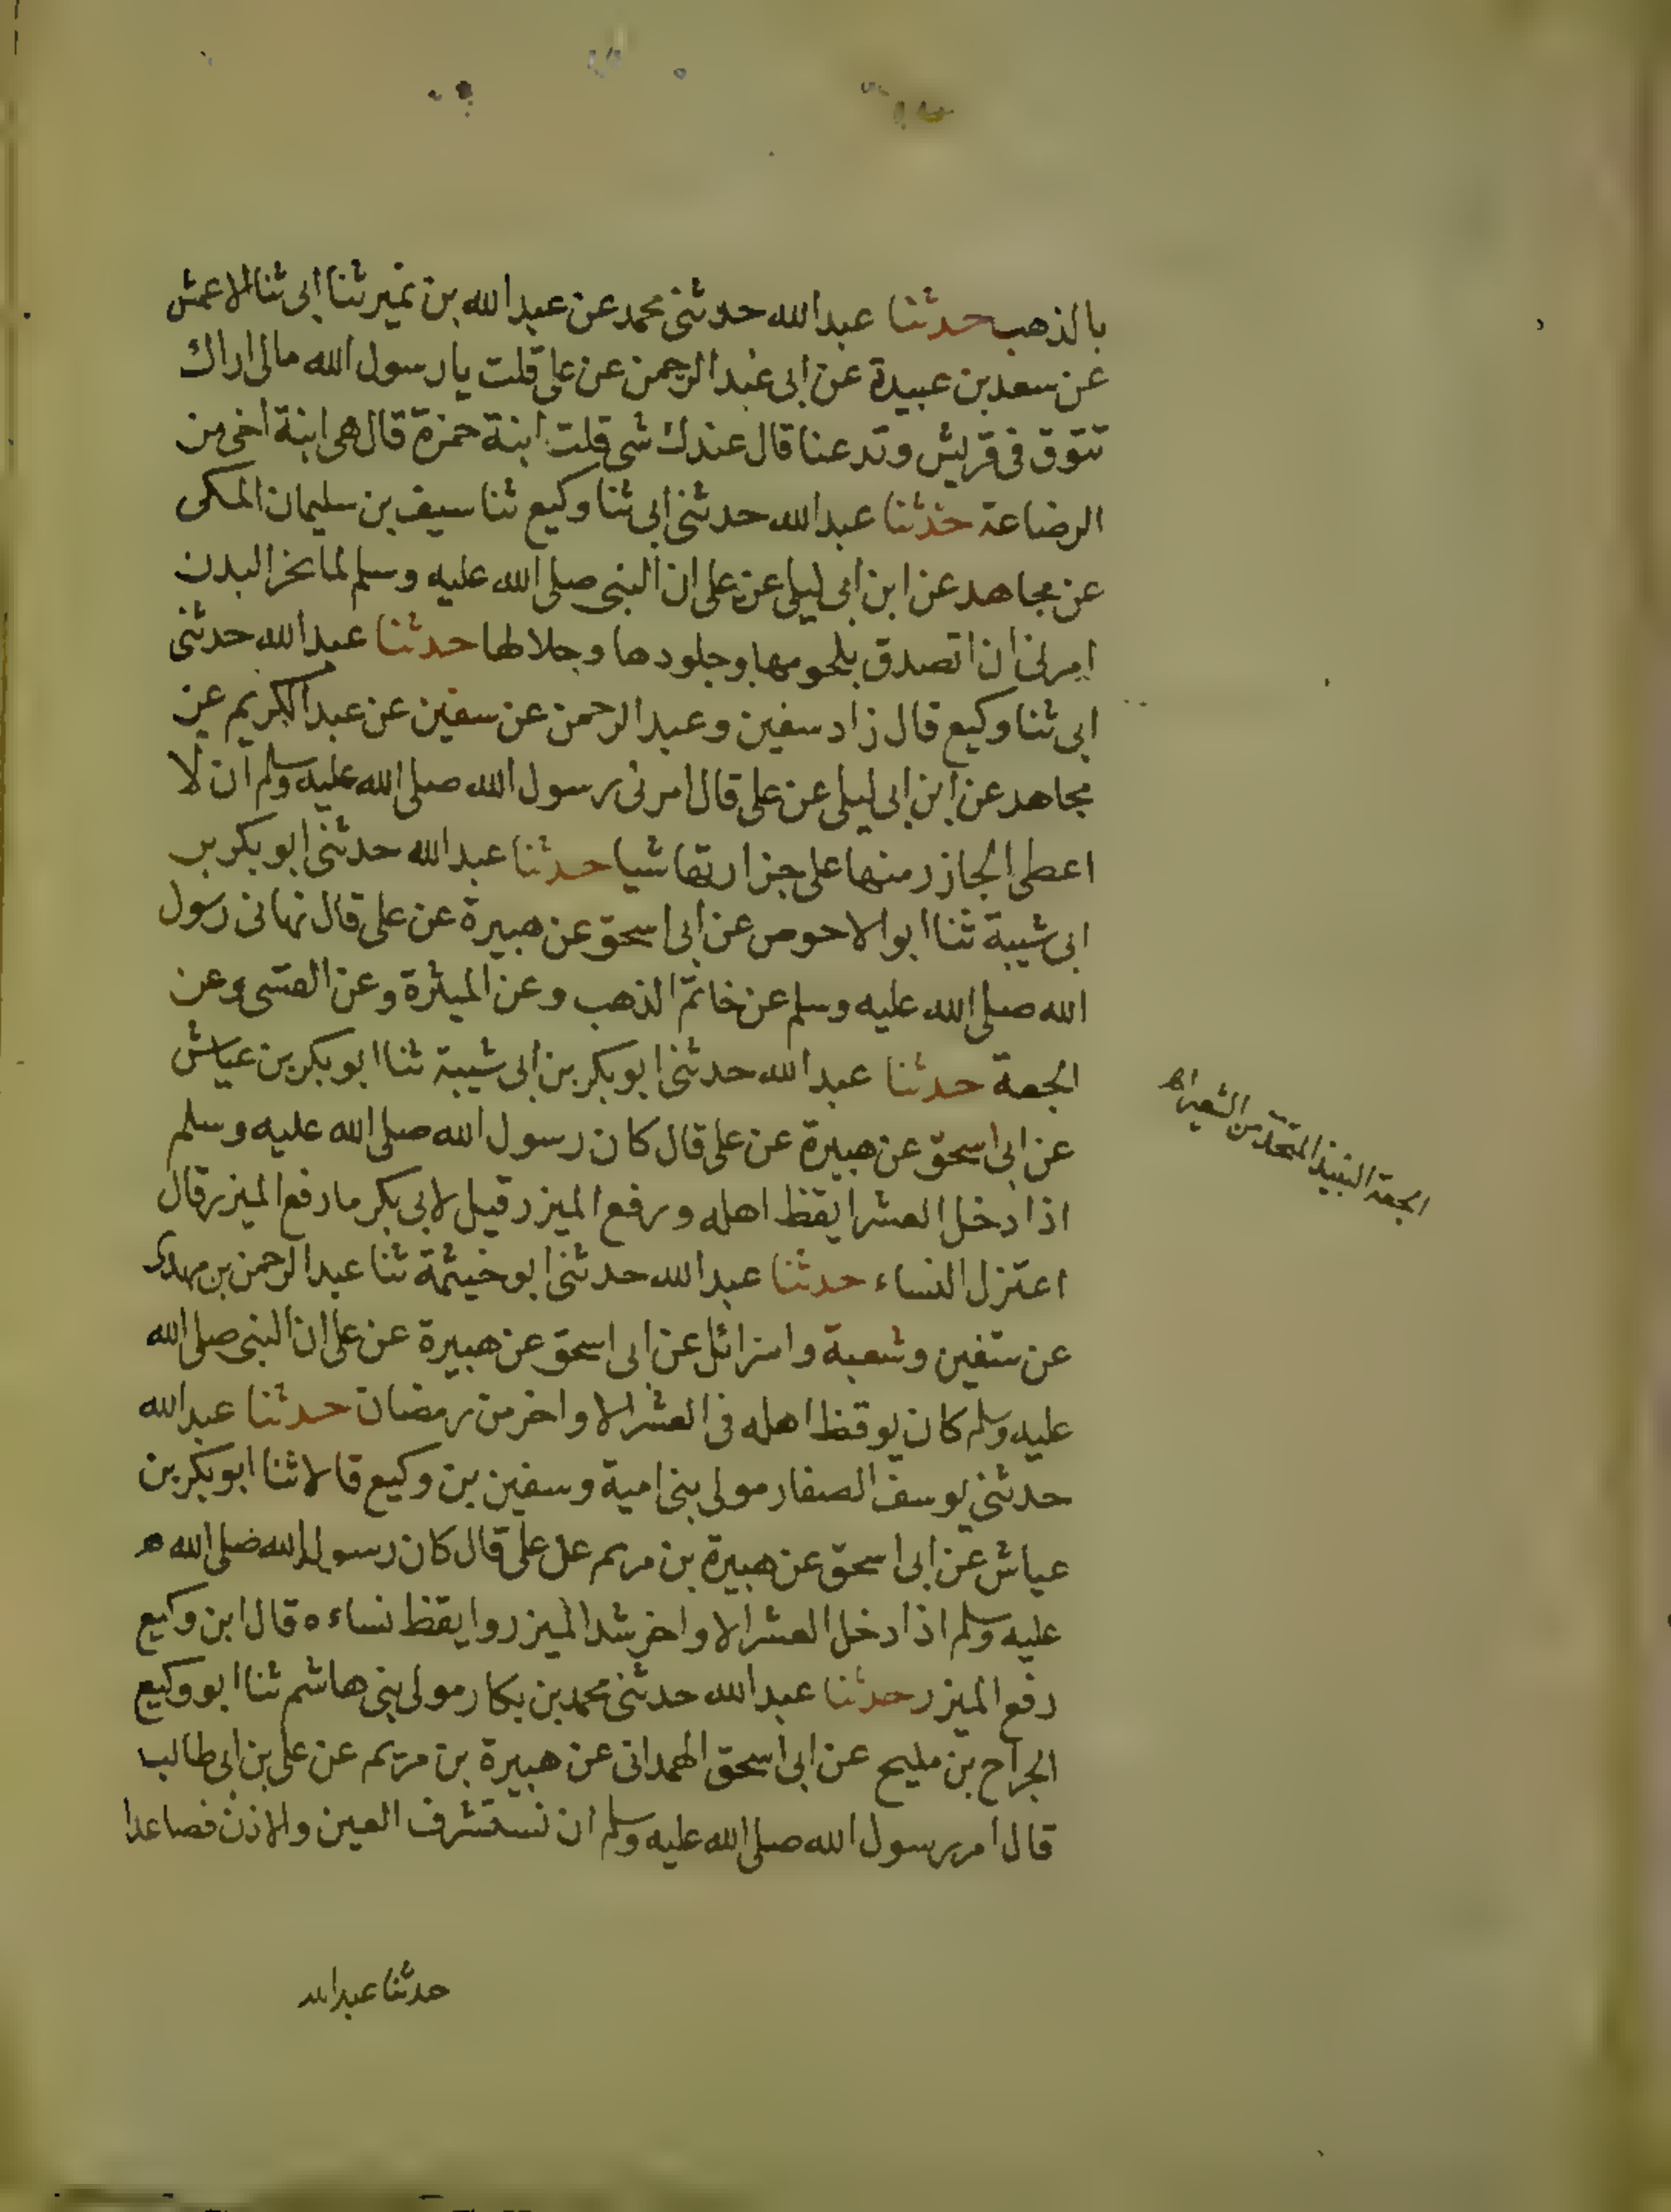 بالذهب حدثنا عبدالله حدثنى محمد عن عبدالله بن نمير ثنا ابى ثنا الاعمش
عن سعد بن عبيدة عن ابى عبد الرحمن عن على قلت يا رسول الله مالى اراك
تتوق فى قريش وتدعنا قال عندك شى قلت ابنة حمزة قال هى ابنة اخى من
الرضاعة حدثنا عبدالله حدثنى ابى ثنا وكيع ثنا سيف بن سليمان المكى
عن مجاهد عن ابن ابى ليلى عن على ان النبى صلى الله عليه وسلم لما نحر البدن
امرنى ان اتصدق بلحومها وجلودها وجلالها حدثنا عبدالله حدثنى
ابى ثنا وكيع قال زاد سفين وعبد الرحمن عن سفين عن عبد الكريم عن
مجاهد عن ابن ابى ليلى عن على قال امرنى رسول الله صلى الله عليه وسلم ان لا
اعطى الجازر منها على جزارتها شيا حدثنا عبدالله حدثنى ابو بكر بن
ابى شيبة ثنا ابو الاحوص عن ابى اسحق عن هبيرة عن على قال نهانى رسول
الله صلى الله عليه وسلم عن خاتم الذهب وعن الميثرة وعن القسى وعن
الجعة حدثنا عبدالله حدثنى ابو بكر بن ابى شيبة ثنا ابو بكر بن عياش
الجعة النبيذ المتخذ من الشعير اه
عن ابى اسحق عن هبيرة عن على قال كان رسول الله صلى الله عليه وسلم
اذا دخل العشر ايقظ اهله ورفع الميزر قيل لابى بكر ما رفع الميزر قال
اعتزل النساء حدثنا عبدالله حدثنى ابو خيثمة ثنا عبد الرحمن بن مهدى
عن سفين وشعبة واسرائل عن ابى اسحق عن هبيرة عن على ان النبى صلى الله
عليه وسلم كان يوقظ اهله فى العشر الاواخر من رمضان حدثنا عبدالله
حدثنى يوسف الصفار مولى بنى امية وسفين بن وكيع قالا ثنا ابو بكر بن
عياش عن ابى اسحق عن هبيرة بن مريم عن على قال كان رسول الله صلى الله
عليه وسلم اذا دخل العشر الاواخر شد الميزر وايقظ نساءه قال ابن وكيع
رفع الميزر حدثنا عبدالله حدثنى محمد بن بكار مولى بنى هاشم ثنا ابو وكيع
الجراح بن مليح عن ابى اسحق الهمدانى عن هبيرة بن مريم عن على بن ابى طالب
قال امر رسول الله صلى الله عليه وسلم ان نستشرف العين والاذن فصاعدا
حدثنا عبدالله